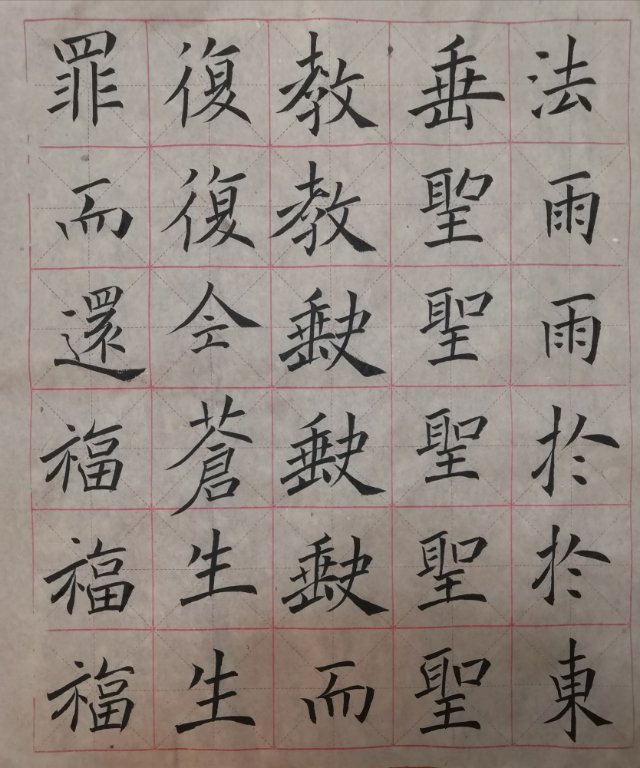 法雨雨於於東
垂聖聖聖聖聖
教教缺缺缺而
復復仝蒼生生
罪而還福福福